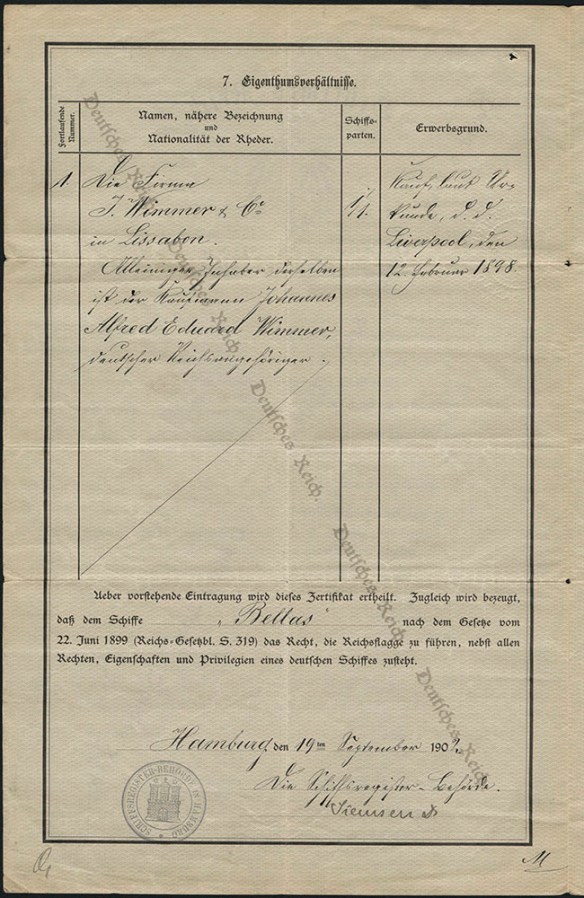 7. Eigenthumsverhältnisse.
Fortlaufende Nummer.
Namen, nähere Bezeichnung
und
Nationalität der Rheder.
Schiffs-
parten.
Erwerbsgrund.
1
Die Firma
J. Wimmer & Co
in Lissabon.
Alleiniger Inhaber derselben
ist der Kaufmann Johannes
Alfred Eduard Wimmer,
deutscher Reichsangehöriger.
1/1.
Kauf, laut Ur-
kunde, d. d.
Liverpool, den
12 Februar 1898.
Ueber vorstehende Eintragung wird dieses Zertifikat ertheilt. Zugleich wird bezeugt,
daß dem Schiffe „Bellas" nach dem Gesetze vom
22. Juni 1899 (Reichs-Gesetzbl. S. 319) das Recht, die Reichsflagge zu führen, nebst allen
Rechten, Eigenschaften und Privilegien eines deutschen Schiffes zusteht.
Hamburg, den 19ten September 1902.
Die Schiffsregister-Behörde.
SCHIFFSREGISTER-BEHÖRDE IN HAMBURG
Deutsches Reich.
Deutsches Reich.
Deutsches Reich.
Deutsches Reich.
Deutsches Reich.
M